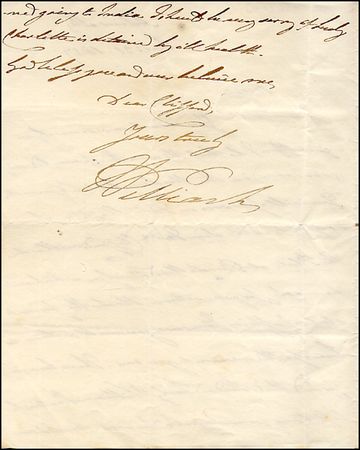 not going to India. I shall be very sorry if Lady
Charlotte is detained by ill health.
God bless you and ever believe me,
Dear Clifford,
Yours truly
William